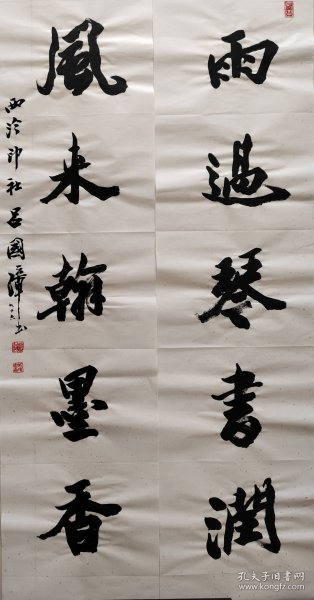 雨過琴書潤
風来翰墨香
西泠印社吕國璋书
孔夫子旧书网